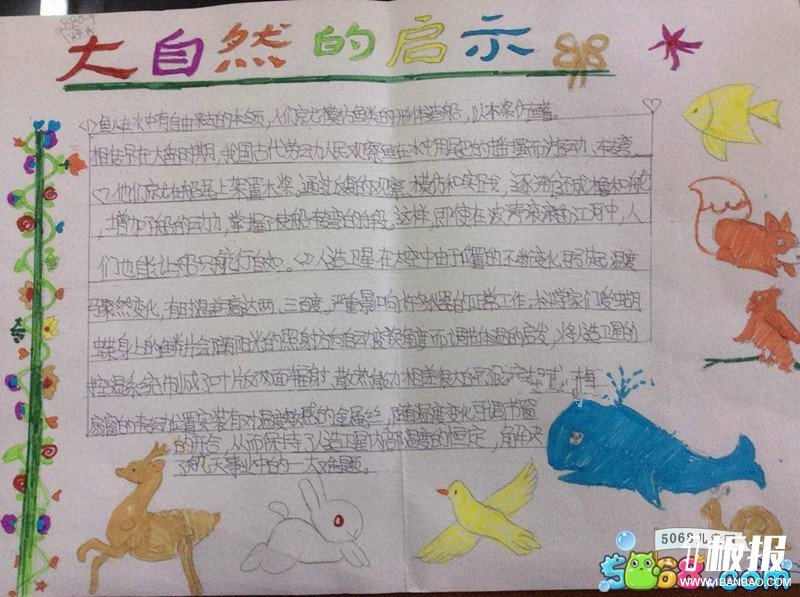 大自然的启示
<1>鱼儿在水中有自由来去的本领,人们就模仿鱼类的形体造船,以木桨仿鳍。
相传早在大禹时期,我国古代劳动人民观察鱼在水中用尾巴的摇摆而游动、转弯
<2>他们就在船尾上架置木桨。通过反复的观察、模仿和实践,逐渐改成橹和舵
,增加了船的动力,掌握了使船转弯的手段。这样,即使在波涛滚滚的江河中,人
们也能让船只航行自如。<3>人造卫星在太空中由于位置的不断变化可引起温度
骤然变化,有时温差高达两、三百度,严重影响许多仪器的正常工作。科学家们受蝴
蝶身上的鳞片会随阳光的照射方向自动变换角度而调节体温的启发,将人造卫星的
控温系统制成了叶片正反两面辐射、散热能力相差很大的
窗的转动位置安装有对温度敏感的金属丝,随着温度变化可调节窗
的开合,从而保持了人造卫星内部温度的恒定,解决
了航天事业中的一大难题。
5068儿
板报
5068.com
WWW.1BANBAO.COM